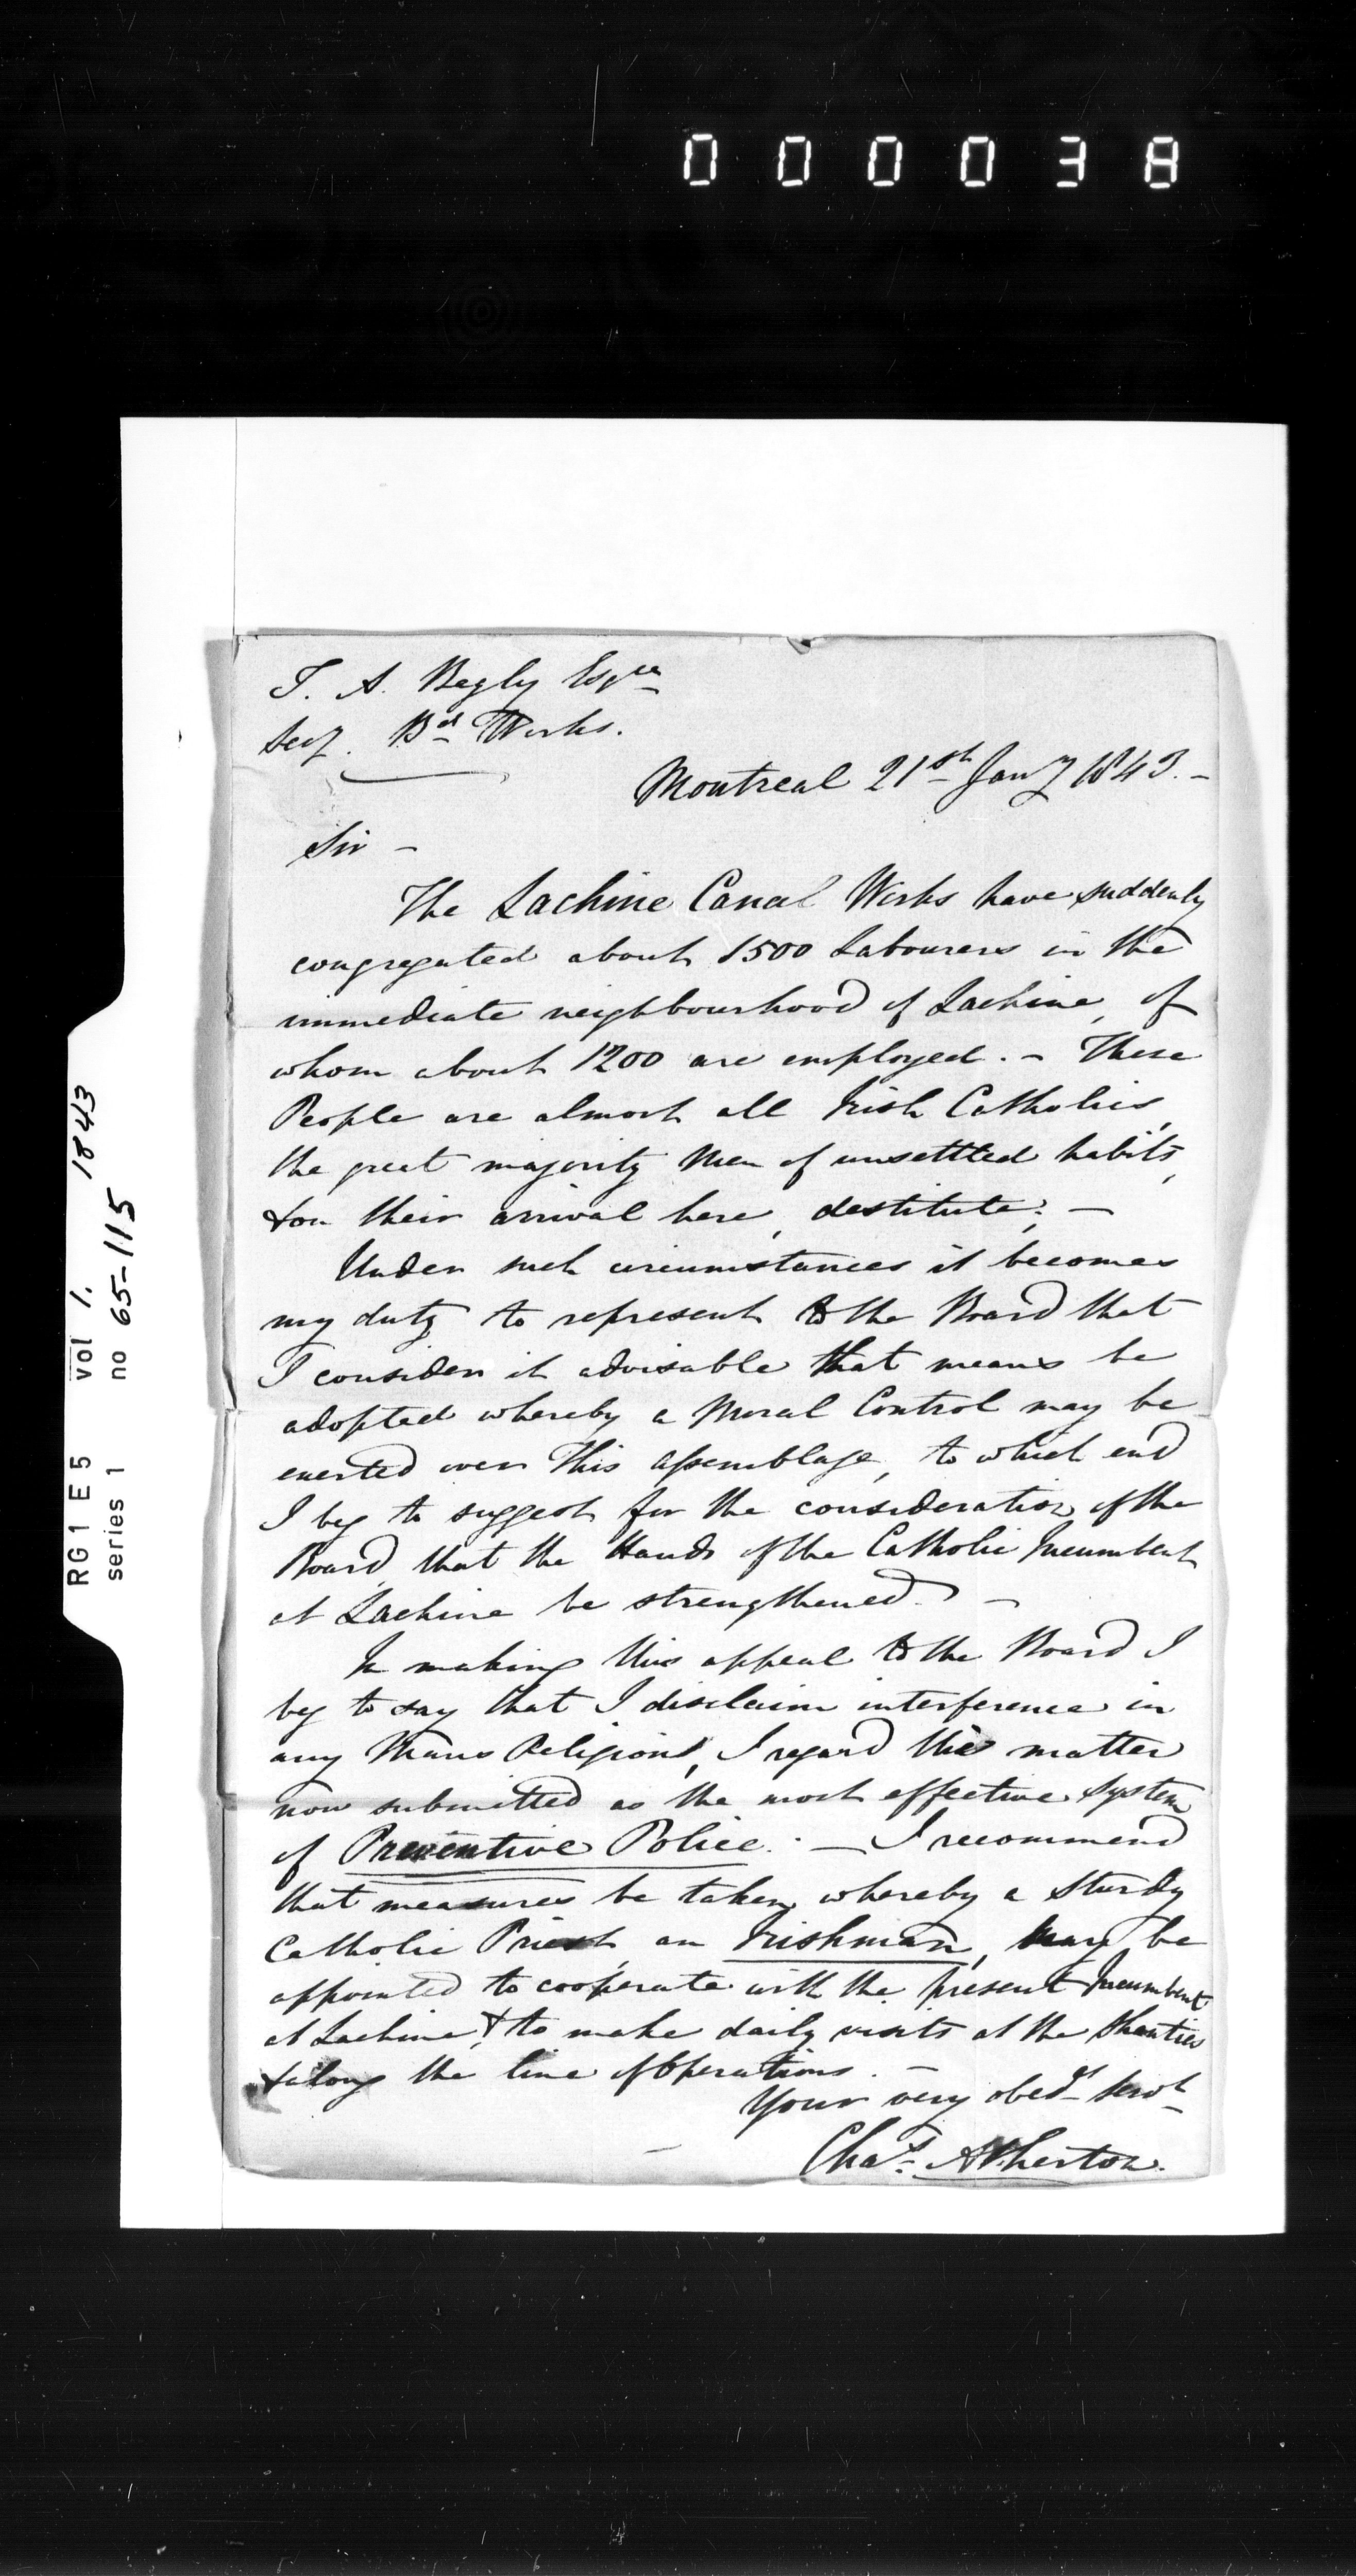 000038
RG1 E5 vol 1. 1843
series 1 no 65-115
T. A. Begly Esqre
Secy. Bd Works.
Montreal 21st Jany 1843. -
Sir -
The Lachine Canal Works have suddenly
congregated about 1500 Labourers in the
immediate neighbourhood of Lachine, of
whom about 1200 are employed. - These
People are almost all Irish Catholics,
the great majority Men of unsettled habits,
& on their arrival here, destitute; -
Under such circumstances it becomes
my duty to represent to the Board that
I consider it advisable that means be
adopted whereby a Moral Control may be
exerted over this assemblage, to which end
I beg to suggest for the consideration of the
Board, that the Hands of the Catholic Incumbent
at Lachine be strengthened. -
In making this appeal to the Board I
beg to say that I disclaim interference in
any Mans Religion, I regard this matter
now submitted as the most effective System
of Preventive Police. - I recommend
that measures be taken whereby a Sturdy
Catholic Priest, an Irishman, may be
appointed to cooperate with the present Incumbent
at Lachine, & to make daily visits at the Shanties
& along the line of Operations. -
Your very obedt Servt
Chas. Atherton.